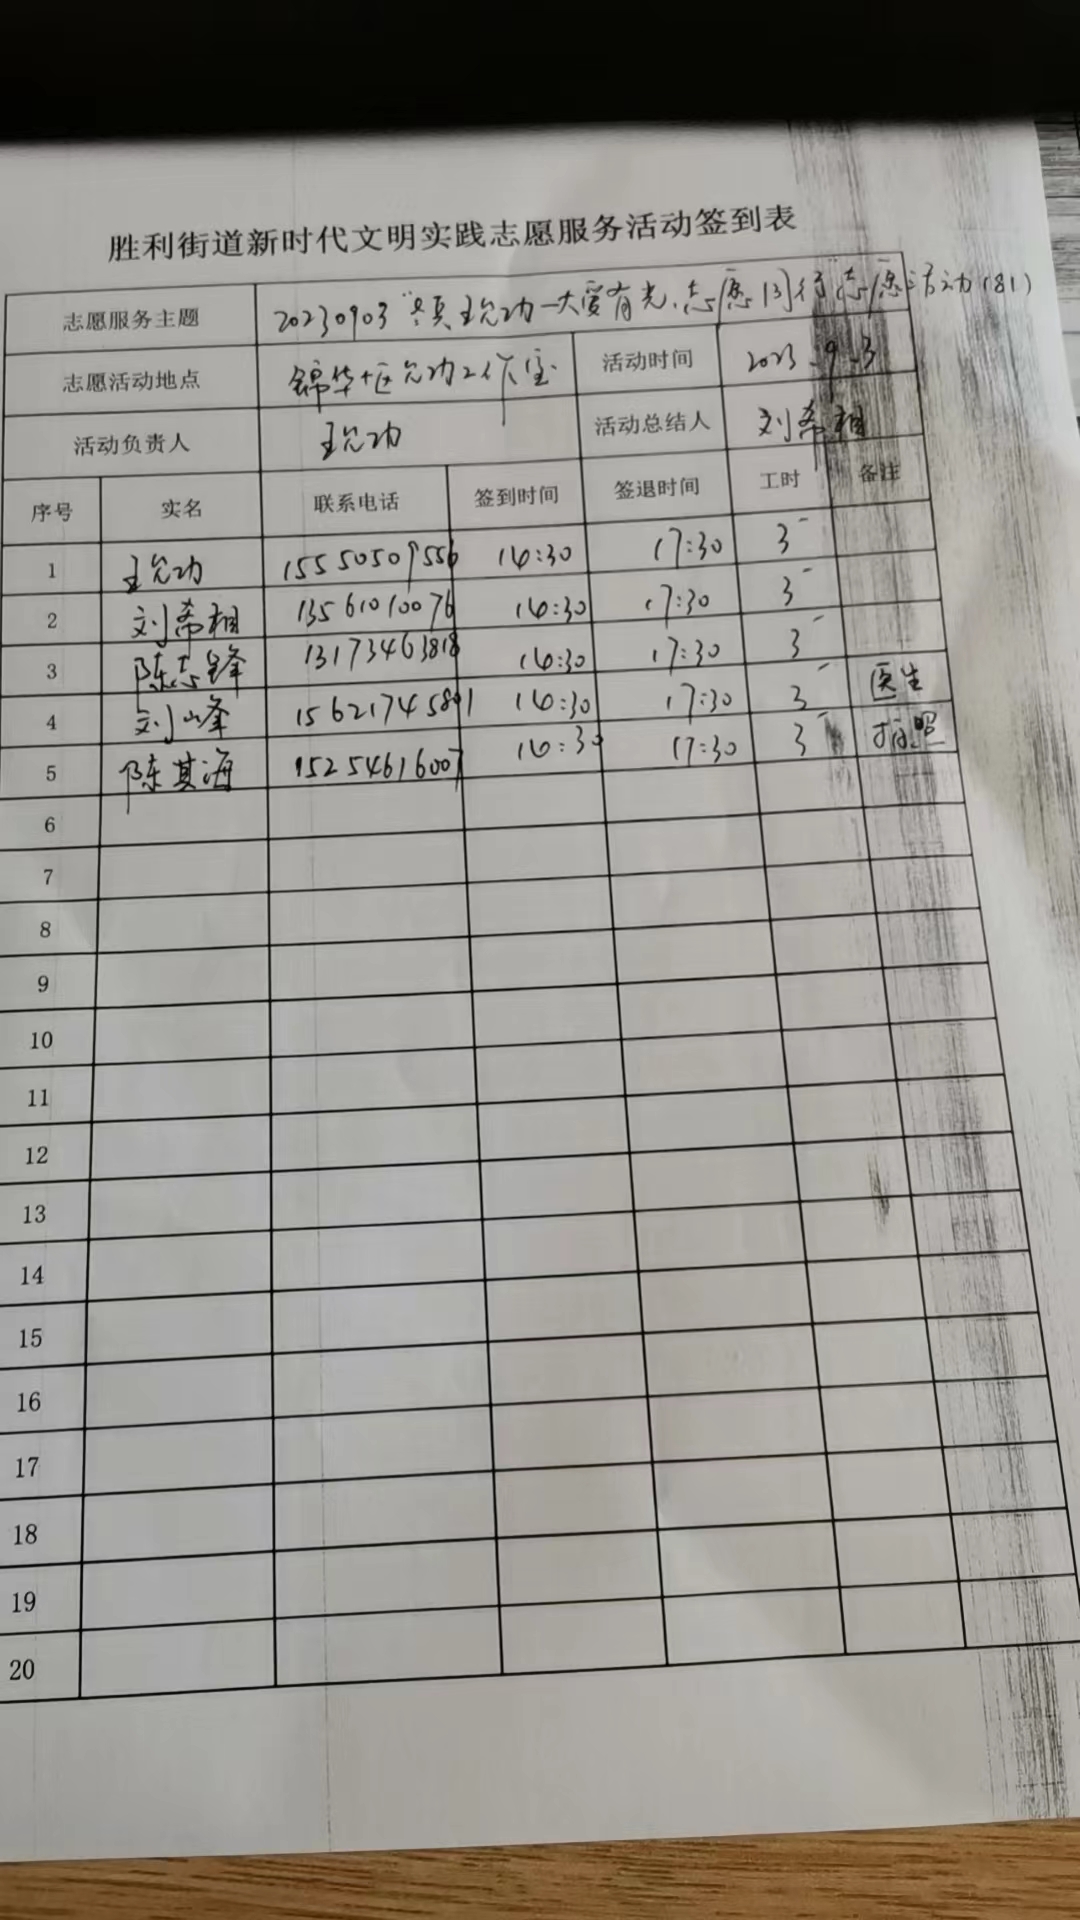 胜利街道新时代文明实践志愿服务活动签到表
志愿服务主题 20230903 王允功 大爱有光、志愿同行 志愿活动(81)
志愿活动地点 锦华 区允功工作室 活动时间 2023.9.3
活动负责人 王允功 活动总结人 刘希相
序号 实名 联系电话 签到时间 签退时间 工时 备注
1 王允功 15550509556 14:30 17:30 3
2 刘希相 13561010076 14:30 17:30 3
3 陈志锋 13173463818 14:30 17:30 3
4 刘峰 15621745801 14:30 17:30 3 医生
5 陈其海 15254616007 14:30 17:30 3 拍照
6
7
8
9
10
11
12
13
14
15
16
17
18
19
20